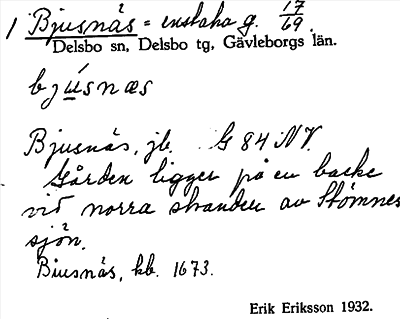 1 Bjusnäs = enstaka g. 17/69.
Delsbo sn, Delsbo tg, Gävleborgs län.
bjúsnæs
Bjusnäs, jb. G 84 NV.
Gården ligger på en backe
vid norra stranden av Stömnes
sjön.
Biusnäs, kb. 1673.
Erik Eriksson 1932.